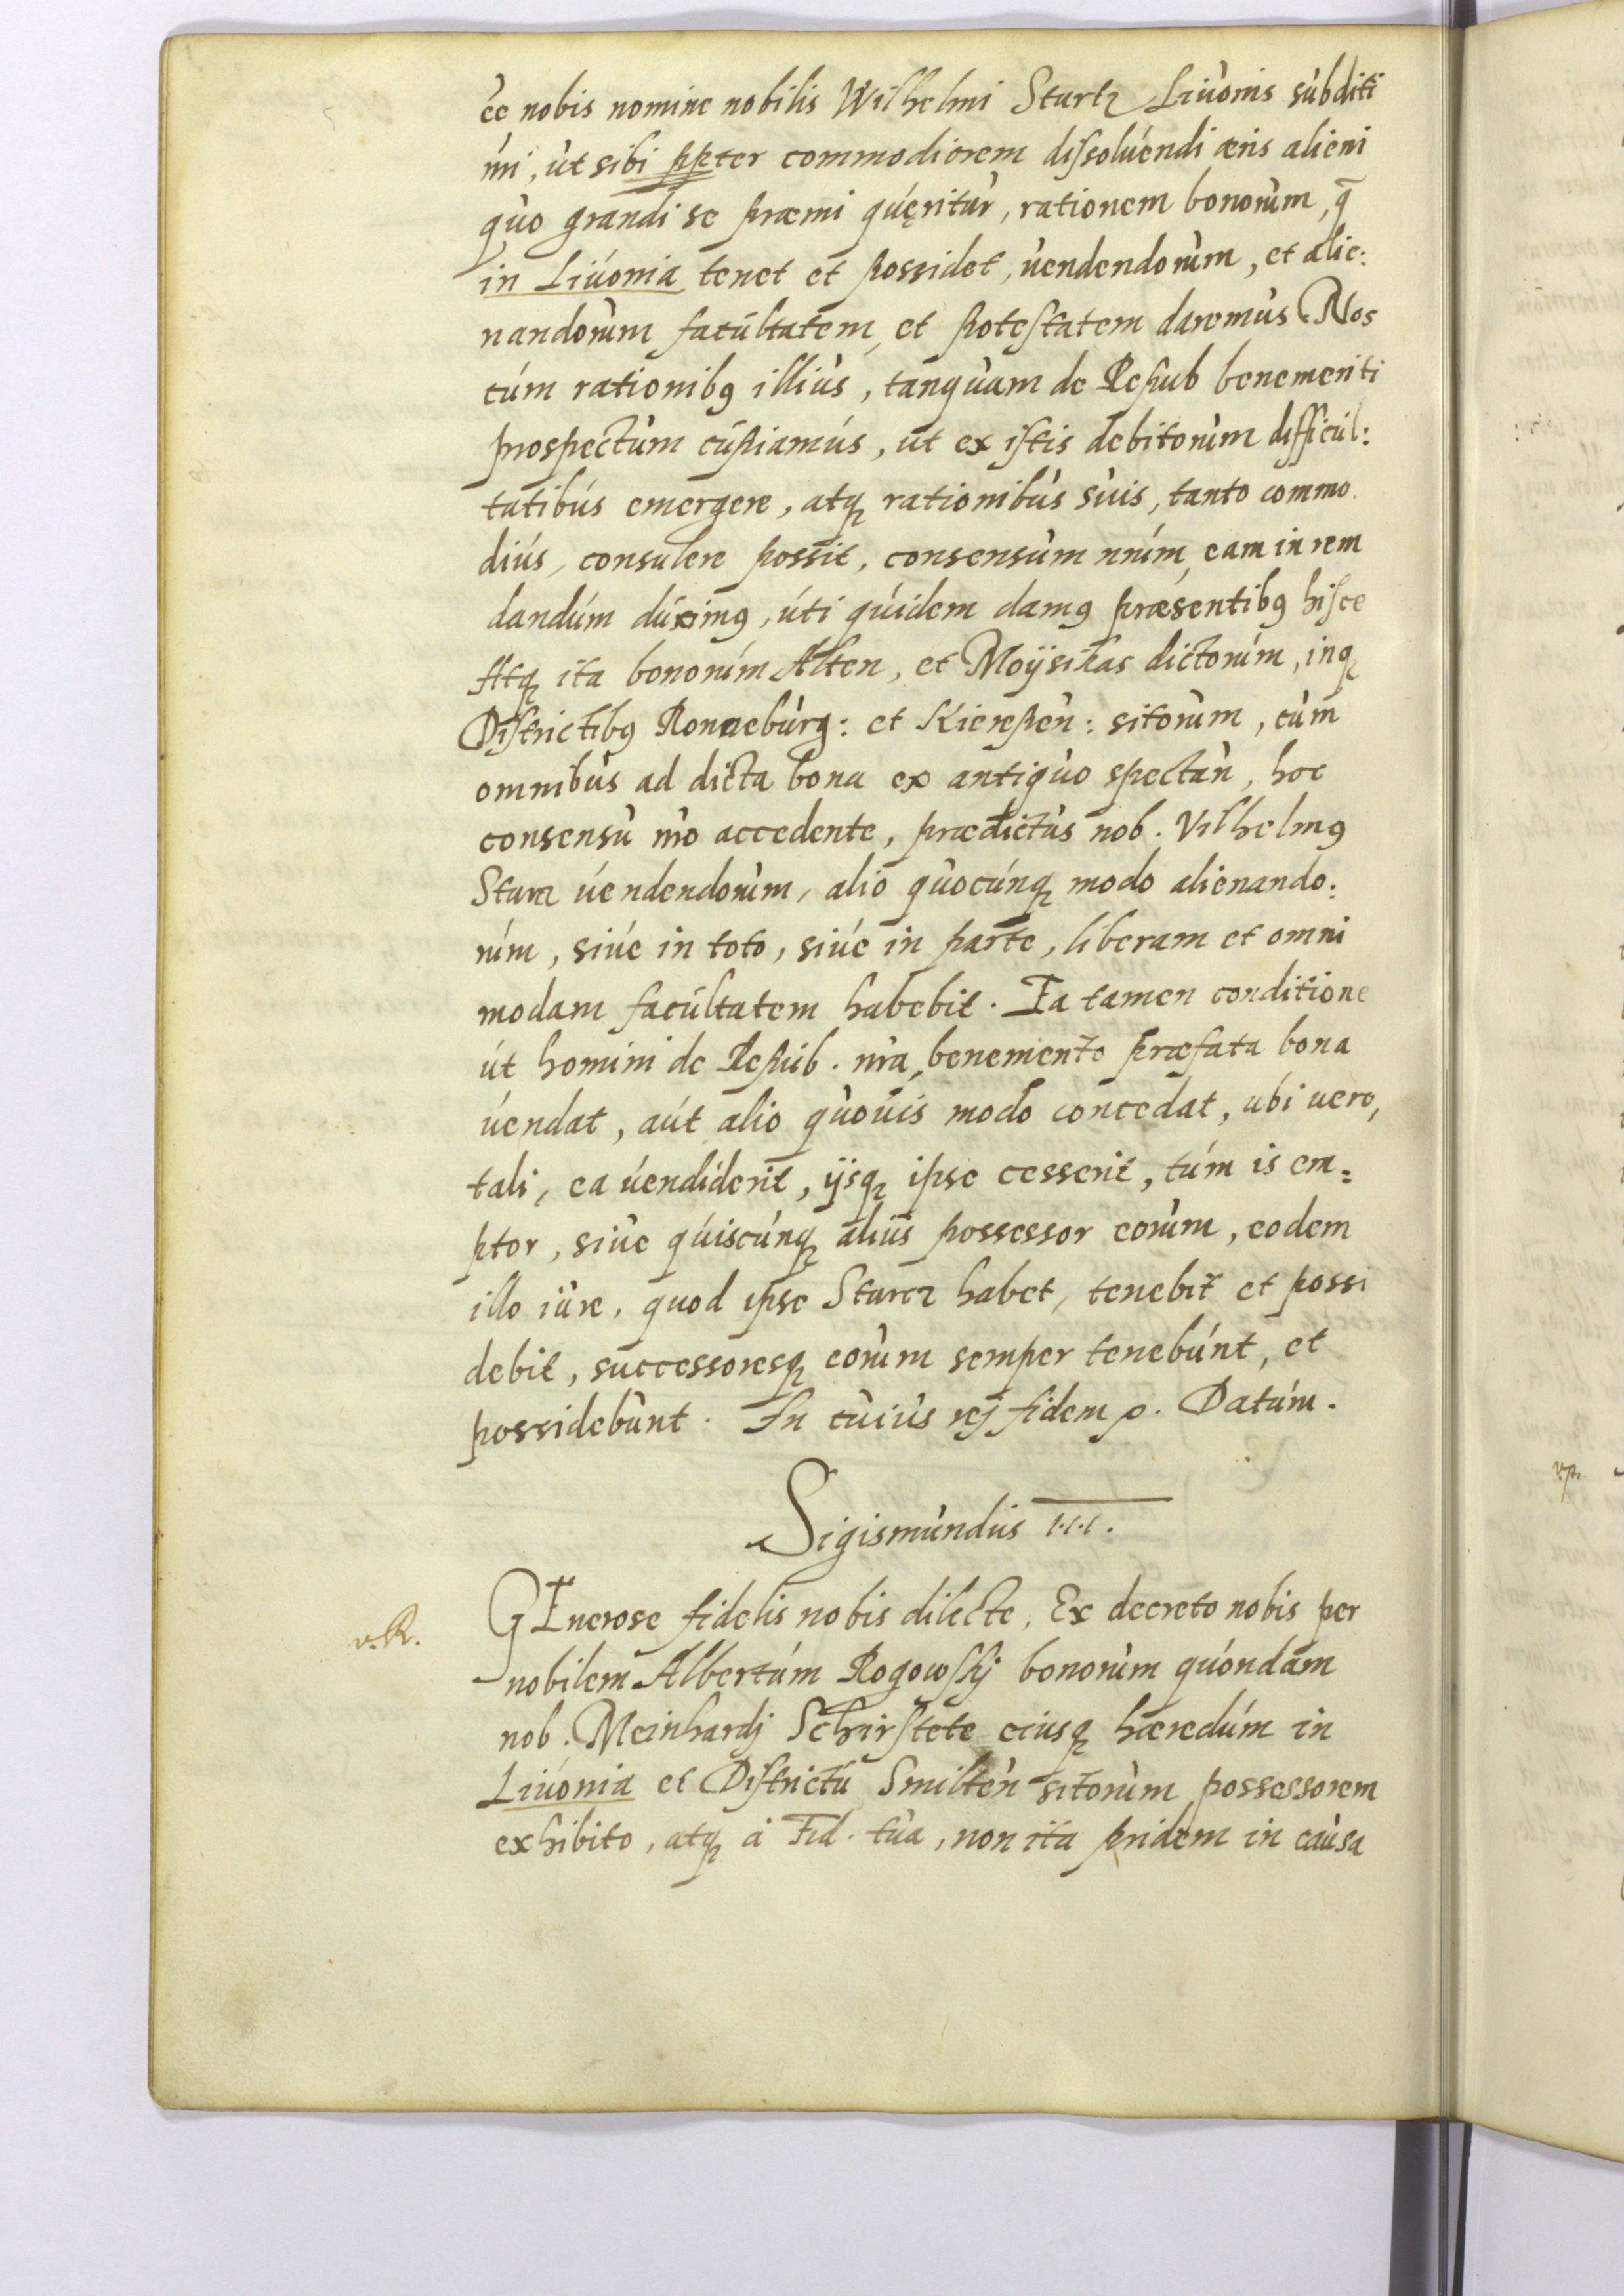 èe nobis nomine nobilis Wilhelmi Startz Liuonis subditi
nri, ut sibi ppter commodiorem dissoluendi aeris alieni
quo grandi se praemi quęritur, rationem bonorum, q̃
in Liuonia tenet et possidet, uendendorum, et alie:
nandorum facultatem, et potestatem daremus Nos
cum rationibq illius, tanquam de Repub benemeriti
prospectum cupiamus, ut ex istis debitorum difficul:
tatibus emergere, atq rationibus suis, tanto commo
dius, consulere possit, consensum nrum, eam in rem
dandum duximq, uti quidem damq praesentibq hisce
Atq ita bonorum Alten, et Moysikas dictorum, inq
Districtibq Ronneburg: et Kierepen: sitorum, cum
omnibus ad dicta bona ex antiquo spectan, hoc
consensu nro accedente, praedictus nob. Vilhelmq
Starz uendendorum, alio quocunq modo alienando:
rum, siue in toto, siue in parte, liberam et omni
modam facultatem habebit. Ea tamen conditione
ut homini de Repub. nra, benemerito praefata bona
uendat, aut alio quouis modo concedat, ubi uero,
tali, ea uendiderit, ijsq ipse cesserit, tum is em=
ptor, siue quiscunq alius possessor eorum, eodem
illo iure, quod ipse Starcz habet, tenebit et possi
debit, successoresq eorum semper tenebunt, et
possidebunt. In cuius rej fidem p. Datum.
Sigismundus III.
v.R.
GEnerose fidelis nobis dilecte, Ex decreto nobis per
nobilem Albertum Rogowskj bonorum quondam
nob. Meinhardj Schirstete eiusq haeredum in
Liuonia et Districtu Smilten sitorum possessorem
exhibito, atq à Fid. tua, non ita pridem in causa